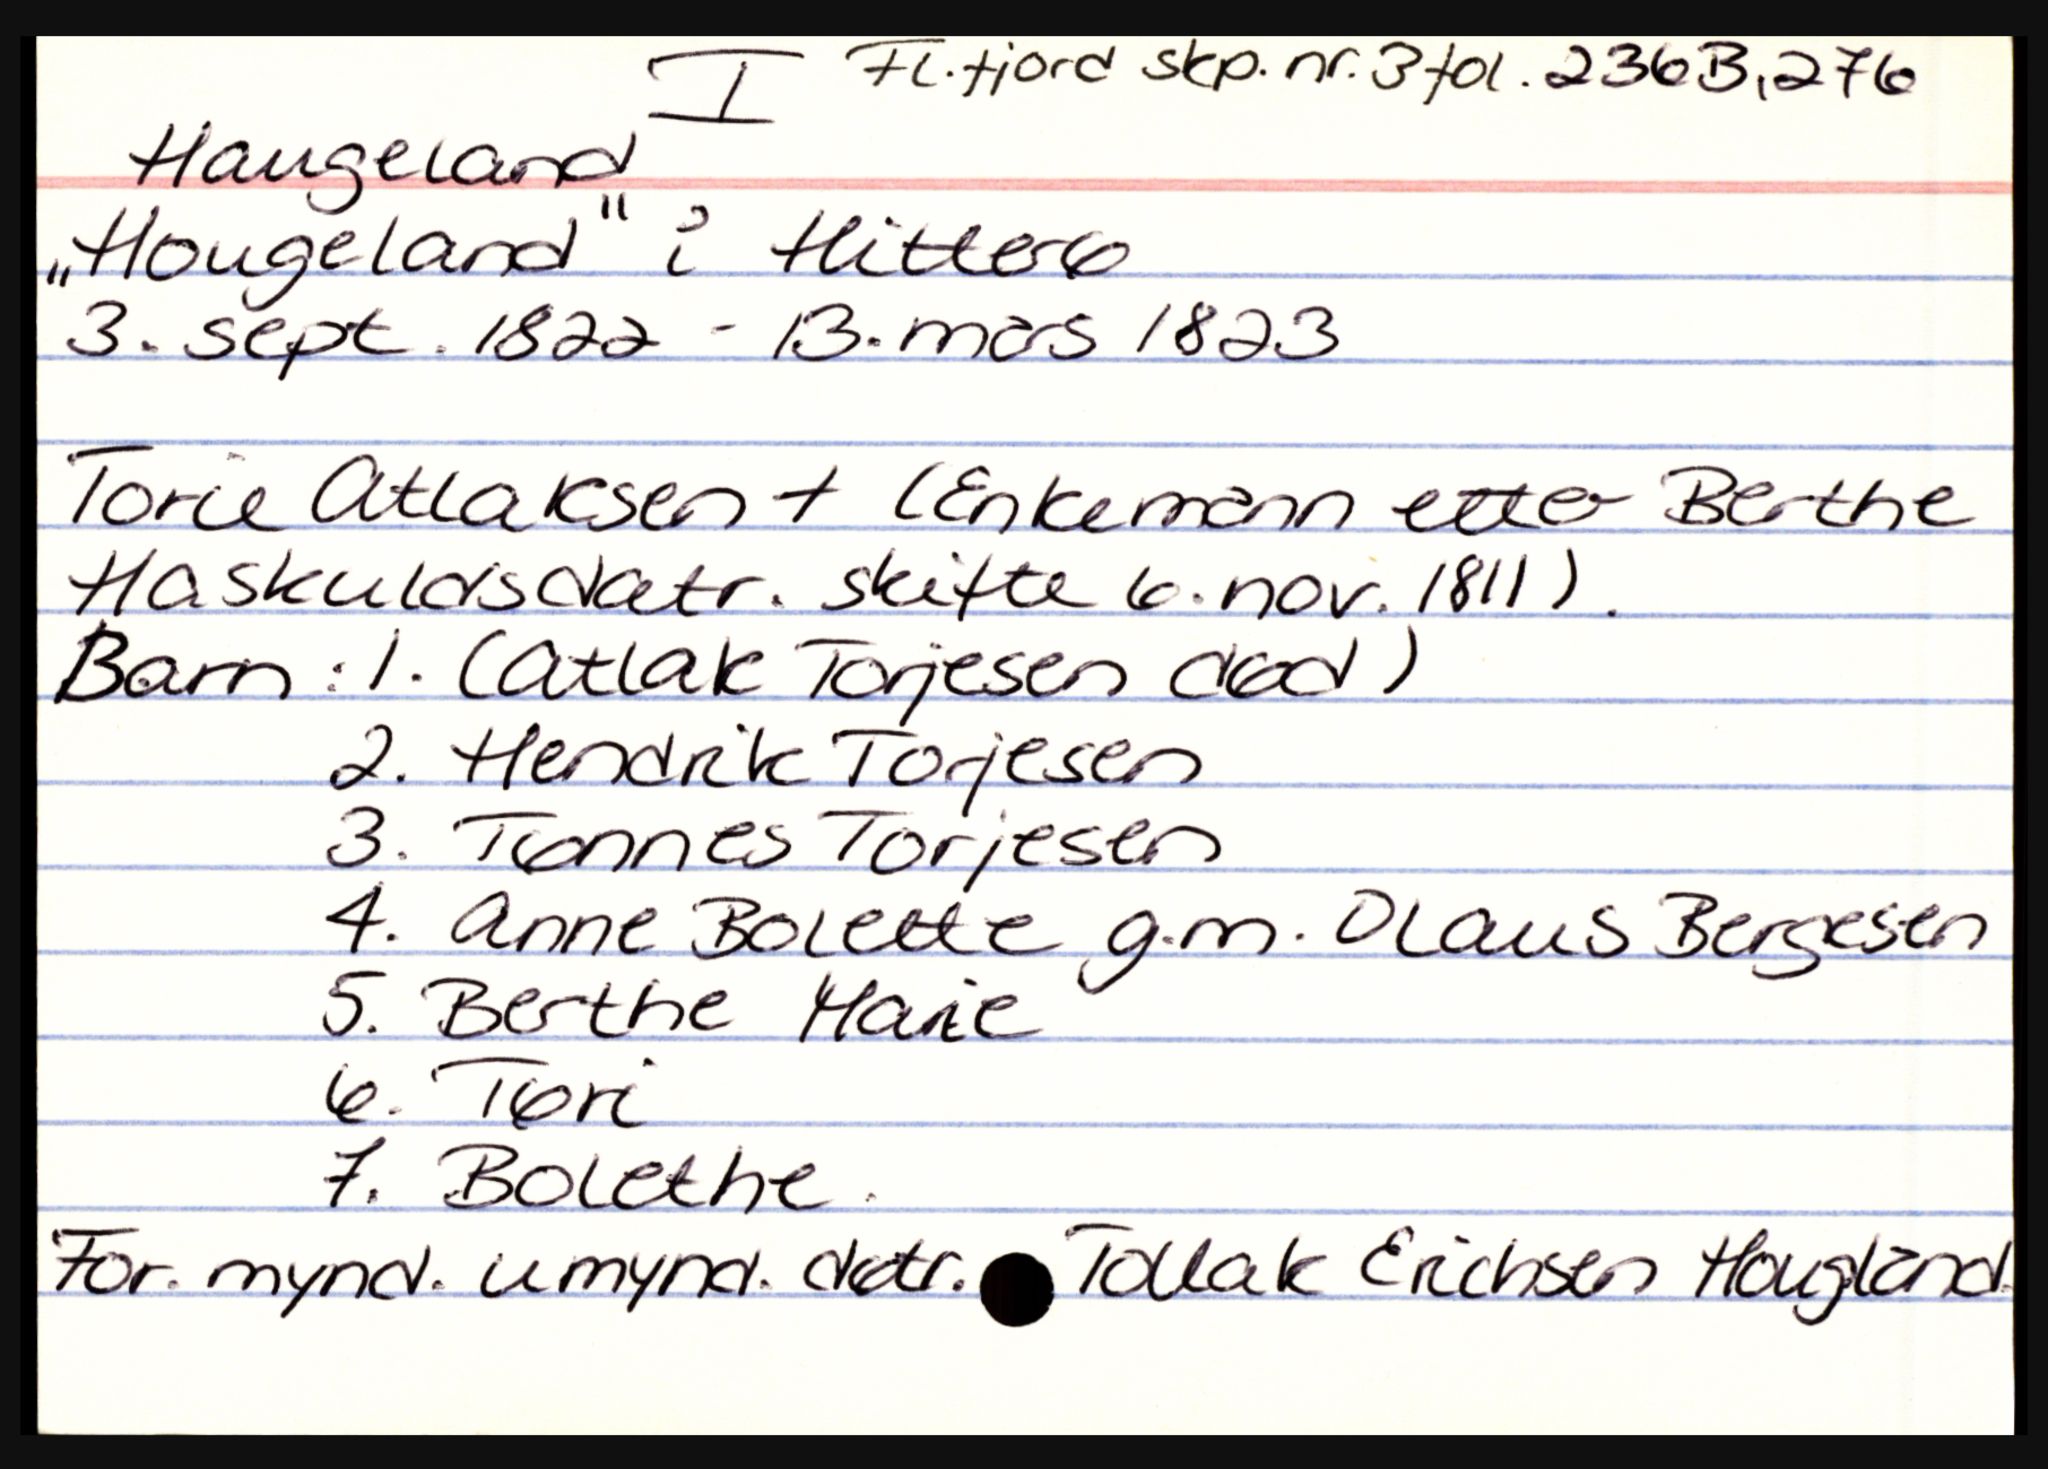 I Fl.fjord skp. nr. 3 fol. 236B, 276
Haugeland
„Hougeland" i Hitterø
3. sept. 1822 - 13. mars 1823
Torie Atlaksen + (Enkemann etter Berthe
Haskuldsdatr. skifte 6. nov. 1811).
Barn: 1. (Atlak Torjesen død)
2. Hendrik Torjesen
3. Tønnes Torjesen
4. Anne Bolette g.m. Olaus Bergesen
5. Berthe Marie
6. Tøri
7. Bolethe.
For. mynd. umynd. døtr. Tollak Erichsen Hougland.